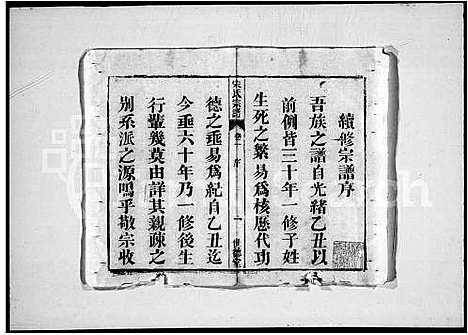 續修宗譜序
吾族之譜自光緒乙丑以
前側皆三十年一修子姓
生死之繁易為核歷代功
宋氏宗譜 卷一 序 一 世德堂
德之垂易為紀自乙丑迄
今垂六十年乃一修後生
行輩幾莫由詳其親疎之
別系派之源嗚乎敬宗收